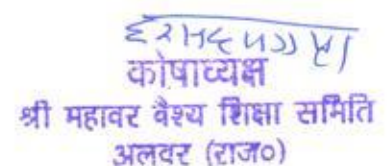 कोषाध्यक्ष
श्री महावर वैश्य शिक्षा समिति
अलवर (राज०)